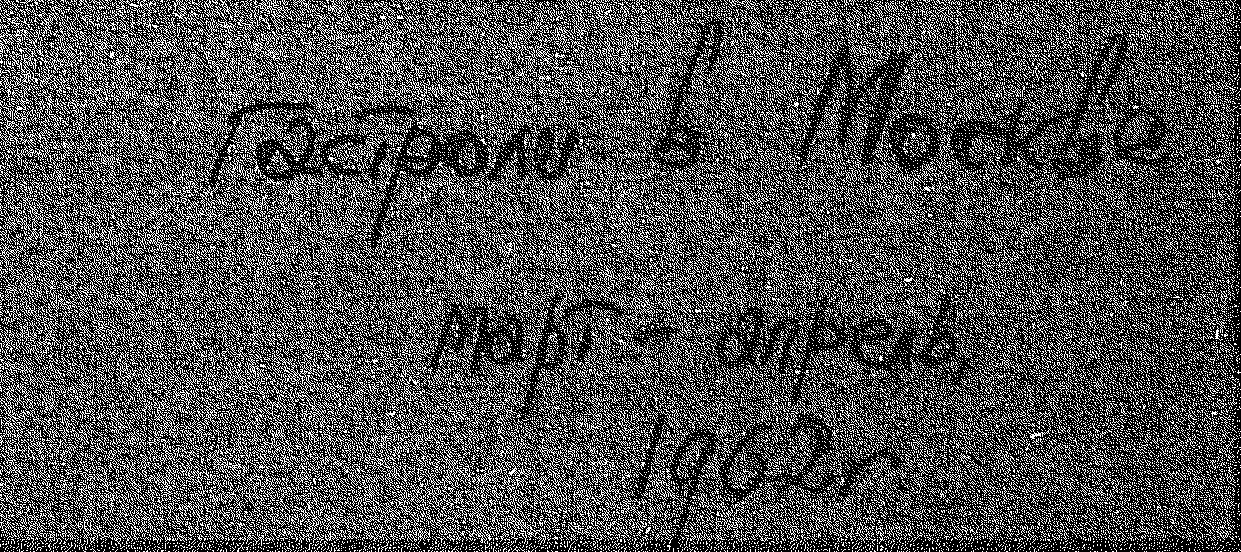 Гастроли в Москве
Март - Апрель,
1903г.